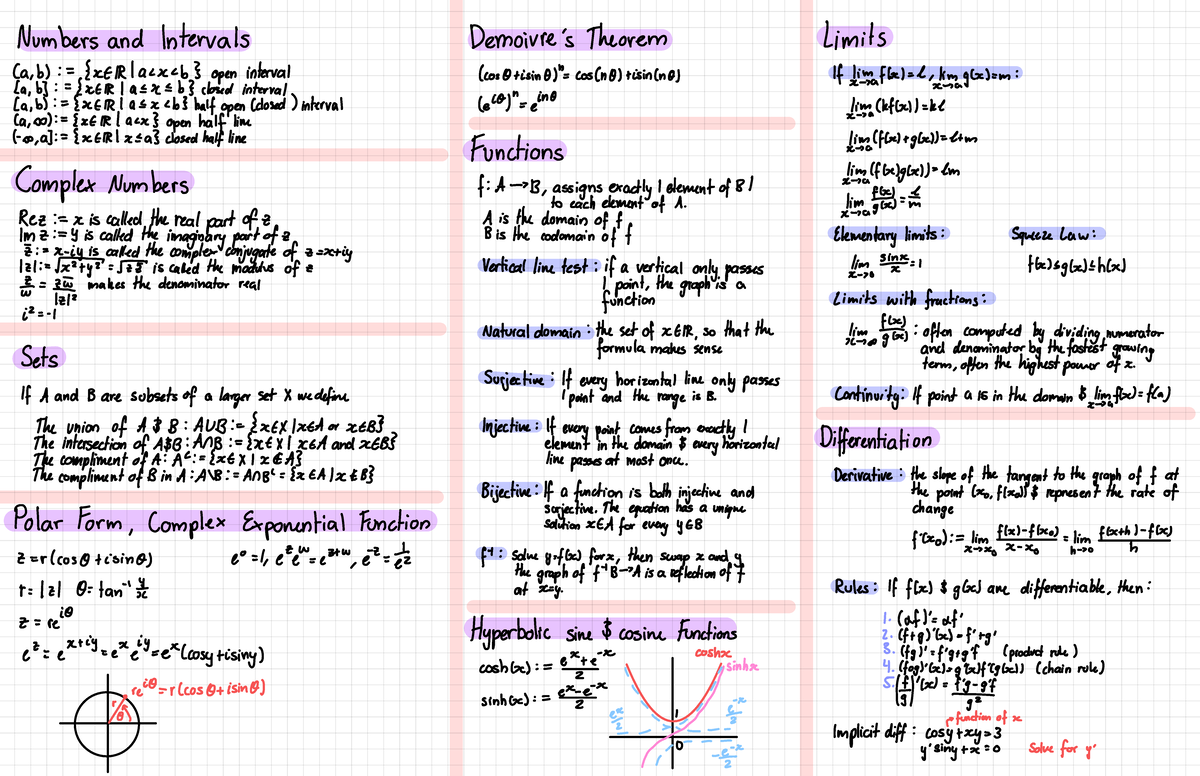 Numbers and Intervals
(a,b) := {x∈ℝ | a<x<b} open interval
[a,b] := {x∈ℝ | a≤x≤b} closed interval
[a,b) := {x∈ℝ | a≤x<b} half open (closed) interval
(a,∞) := {x∈ℝ | a<x} open half line
(-∞,a] := {x∈ℝ | x≤a} closed half line
Complex Numbers
Re z := x is called the real part of z
Im z := y is called the imaginary part of z
z̄ := x-iy is called the complex conjugate of z=x+iy
|z| := √(x²+y²) = √(zz̄) is called the modulus of z
z/w = zw/|z|² makes the denominator real
i²=-1
Sets
If A and B are subsets of a larger set X we define
The union of A & B : A∪B := {x∈X | x∈A or x∈B}
The intersection of A&B : A∩B := {x∈X | x∈A and x∈B}
The compliment of A : Aᶜ := {x∈X | x∉A}
The compliment of B in A : A\B := A∩Bᶜ = {x∈A | x∉B}
Polar Form, Complex Exponential Function
z = r(cosθ+isinθ) e⁰=1, e^z e^w = e^(z+w), e^(-z) = 1/e^z
r = |z| θ = tan⁻¹ y/x
z = re^(iθ)
e^z = e^(x+iy) = e^x e^(iy) = e^x(cosy+isiny)
re^(iθ) = r(cosθ+isinθ)
r
θ
Demoivre's Theorem
(cosθ+isinθ)ⁿ = cos(nθ)+isin(nθ)
(e^(iθ))ⁿ = e^(inθ)
Functions
f: A→B, assigns exactly 1 element of B
to each element of A.
A is the domain of f
B is the codomain of f
Vertical line test : if a vertical only passes
1 point, the graph is a
function
Natural domain : the set of x∈ℝ, so that the
formula makes sense
Surjective : If every horizontal line only passes
1 point and the range is B.
Injective : If every point comes from exactly 1
element in the domain & every horizontal
line passes at most once.
Bijective : If a function is both injective and
surjective. The equation has a unique
solution x∈A for every y∈B
f⁻¹ : solve y=f(x) for x, then swap x and y
the graph of f⁻¹ B→A is a reflection of f
at x=y.
Hyperbolic sine & cosine Functions
cosh(x) := (e^x+e^-x)/2
sinh(x) := (e^x-e^-x)/2
coshx
sinhx
e^x/2
e^-x/2
1
0
-e^-x/2
Limits
If lim x→a f(x)=l, lim x→a g(x)=m :
lim x→a (kf(x)) = kl
lim x→a (f(x)+g(x)) = l+m
lim x→a (f(x)g(x)) = lm
lim x→a f(x)/g(x) = l/m
Elementary limits : Squeeze Law :
lim x→0 sinx/x = 1 f(x)≤g(x)≤h(x)
Limits with fractions :
lim x→∞ f(x)/g(x) : often computed by dividing numerator
and denominator by the fastest growing
term, often the highest power of x.
Continuity : If point a is in the domain & lim x→a f(x) = f(a)
Differentiation
Derivative : the slope of the tangent to the graph of f at
the point (x₀, f(x₀)) & represent the rate of
change
f'(x₀) := lim x→x₀ (f(x)-f(x₀))/(x-x₀) = lim h→0 (f(x+h)-f(x))/h
Rules : If f(x) & g(x) are differentiable, then :
1. (αf)' = αf'
2. (f+g)'(x) = f'+g'
3. (fg)' = f'g+g'f (product rule)
4. (fog)'(x) = g'(x)f'(g(x)) (chain rule)
5. (f/g)'(x) = (f'g-g'f)/g²
function of x
Implicit diff : cosy+xy=3
y'siny+x=0 Solve for y'